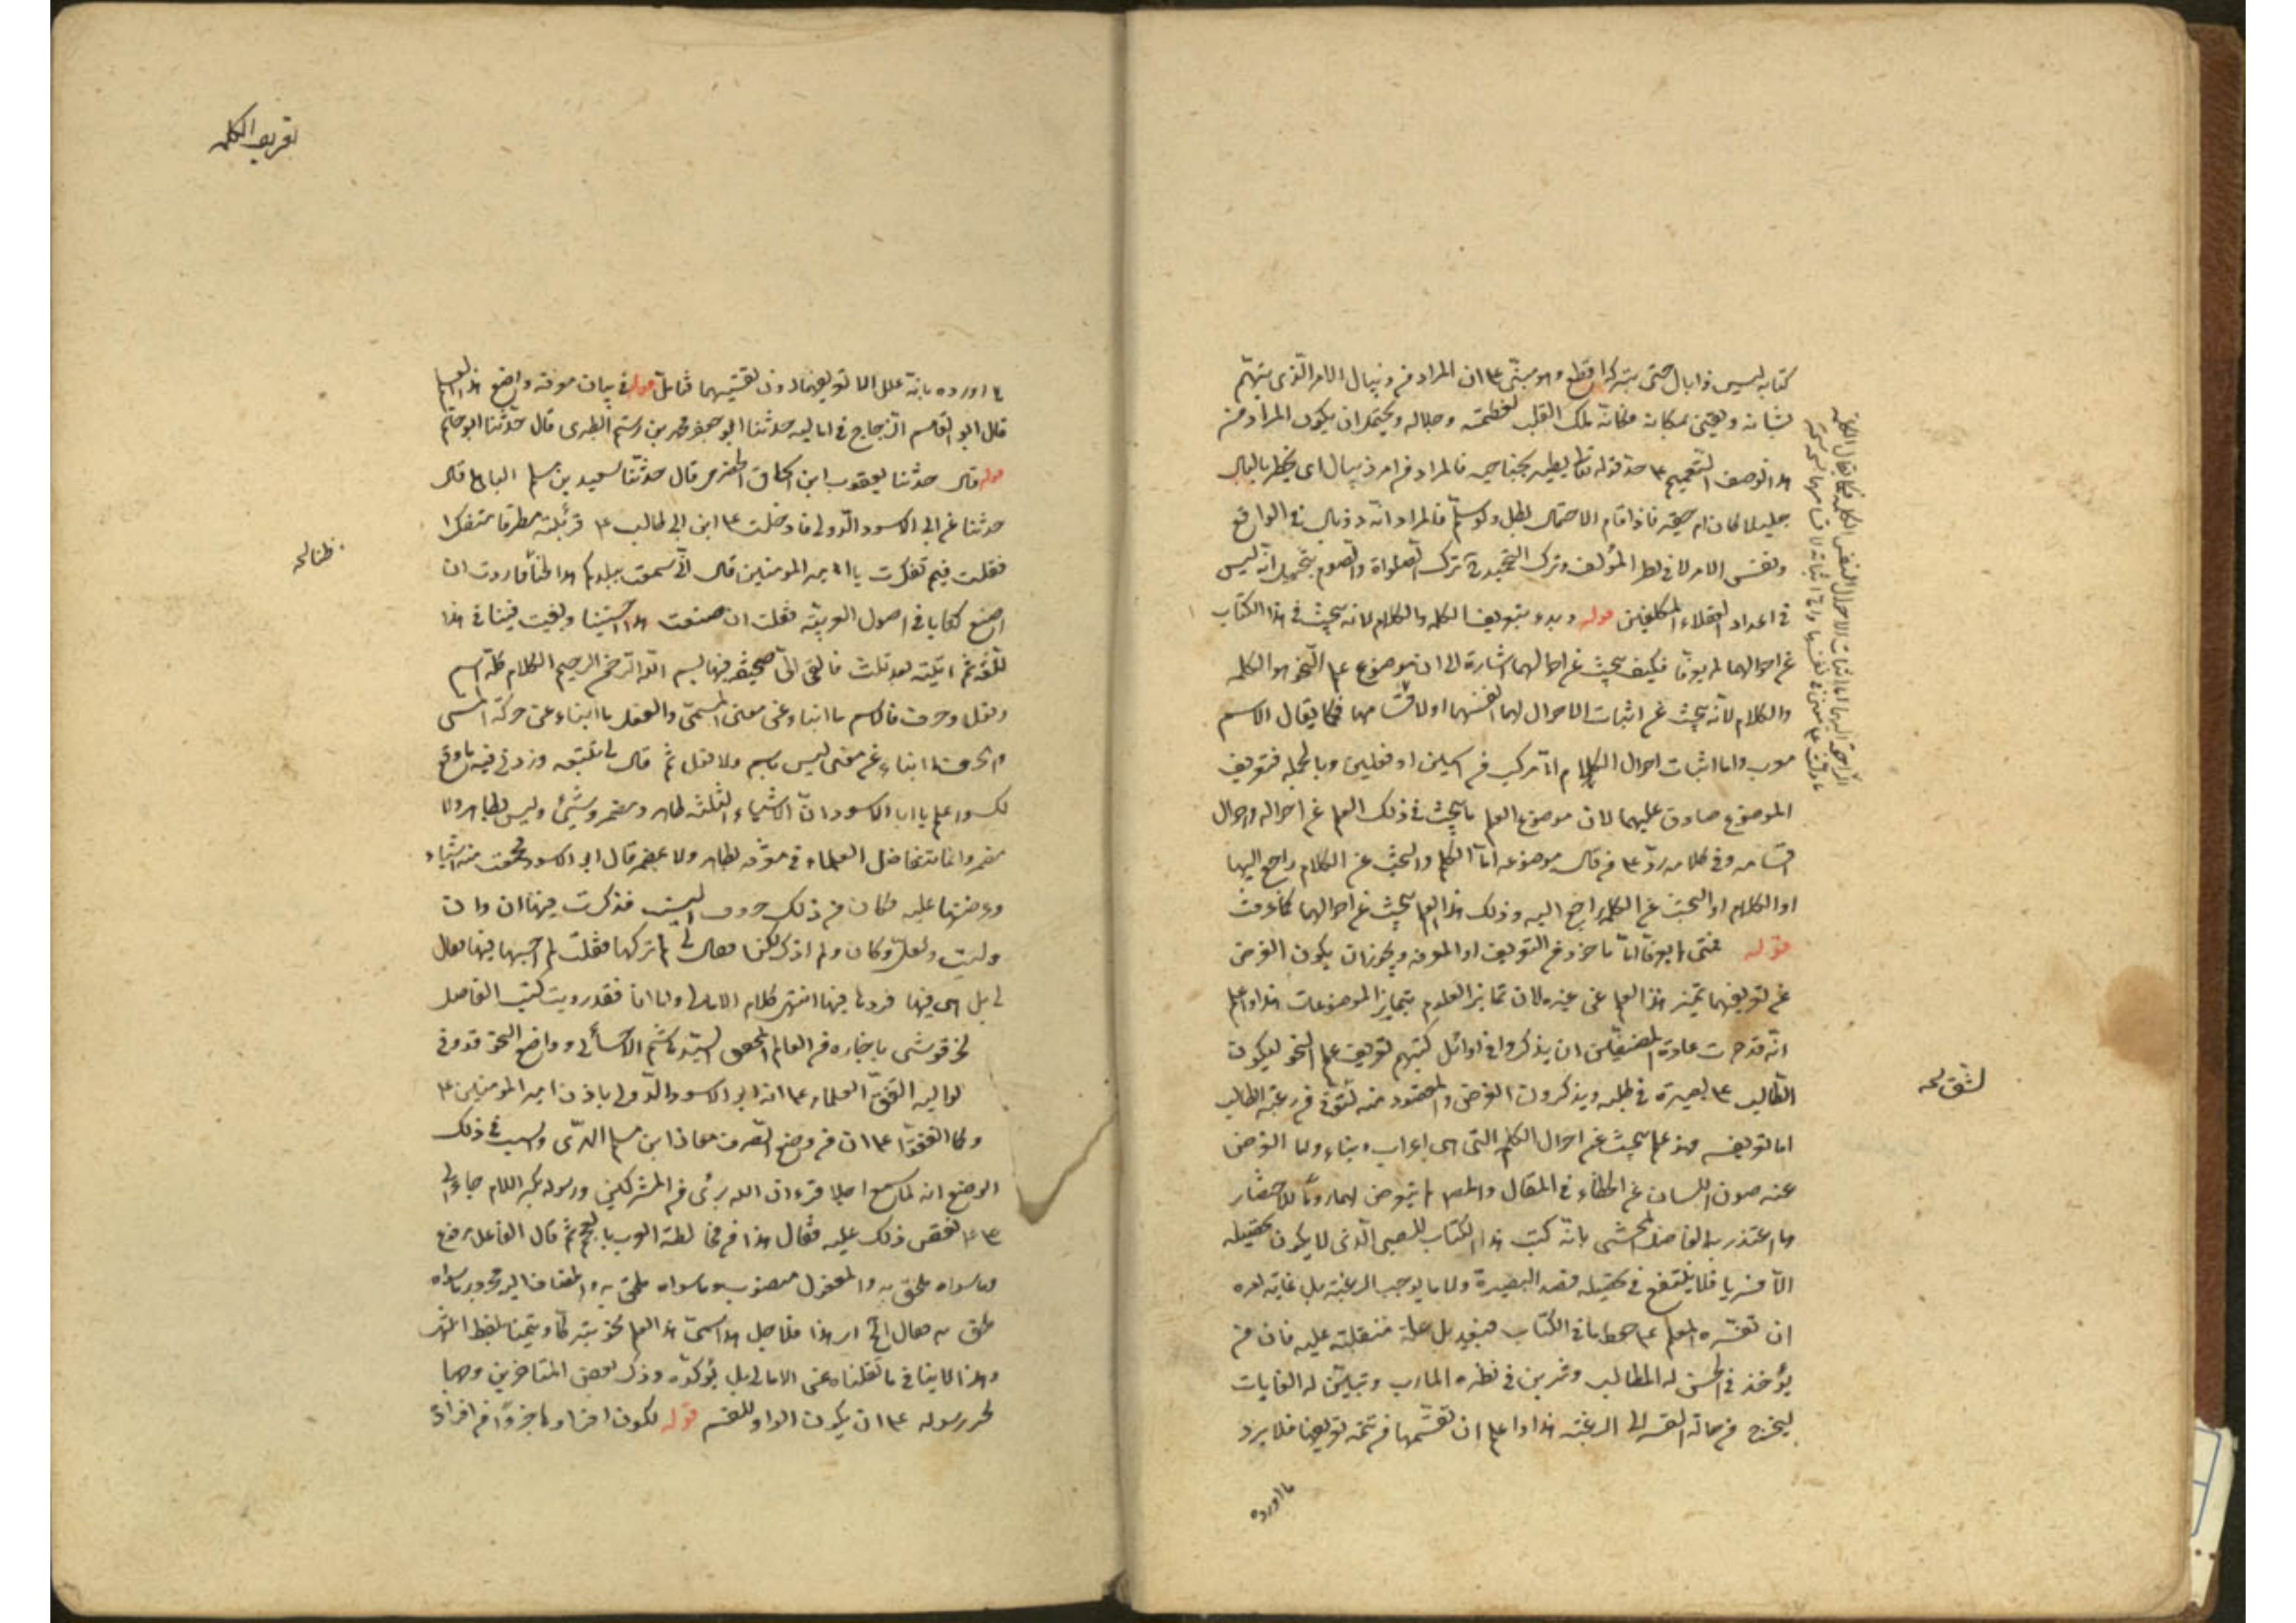 كتابه ليس ذا بال حتى بتركه اقطع وهو مبنى على ان المراد من ذيبال الامر الذى يهتم
بشانه ويعتنى بمكانه فكانه ملك القلب لعظمته وجلاله ويحتمل ان يكون المراد من
هذا الوصف التعميم على حد قوله تعالى يطير بجناحيه فالمراد من امر ذيبال اى يخطر بالبال
جليلا كان ام حقير فاذا قام الاحتمال بطل ولو سلم فالمراد انه ذو بال فى الواقع
ونفس الامر لا فى نظر المؤلف وترك التحميد كترك الصلواة والصوم بتخييل انه ليس
فى اعداد العقلاء المكلفين قوله وبدء بتعريف الكلمه والكلام لانه يبحث فى هذا الكتاب
عن احوالهما لم يعرفا فكيف يبحث عن احوالهما اشارة الى ان موضوع علم النحو هو الكلمه
والكلام لانه يبحث عن اثبات الاحوال لهما انفسهما او لاقسامهما فكما يقال الاسم
معرب واما اثبات احوال الكلام اما تركب من اسمين او فعلين وبالجمله فتعريف
الموضوع صادق عليهما لان موضوع العلم ما يبحث فى ذلك العلم عن احواله واحوال
اقسامه وفى كلامه رد على من قال موضوعه اما الكلم والبحث عن الكلام راجع اليها
او الكلام او البحث عن الكلمه راجع اليه وذلك هذا العلم يبحث عن احوالهما كما عرفت
قوله فمتى لم يعرفا اما ماخوذ من التعريف او المعرفه ويجوز ان يكون الغرض
عن تعريفهما تميز هذا العلم عن غيره لان تمايز العلوم بتمايز الموضوعات هذا واعلم
انه قد جرت عادة المصنفين ان يذكروا فى اوائل كتبهم تعريف علم النحو ليكون
الطالب على بصيرة فى طلبه ويذكرون الغرض والمقصود منه لتقوى من رغبة الطالب
اما تعريفه فهو علم يبحث عن احوال الكلم التى هى اعراب وبناء واما الغرض
عنه صون اللسان عن الخطاء فى المقال والمص لم يتعرض لهما روما للاختصار
وما اعتذر به الفاضل المحشى بانه كتب هذا الكتاب للصبى الذى لا يكون تحصيله
الا قسريا فلا ينفع فى تحصيله قصد البصيرة ولا ما يوجب الرغبة بل غاية امره
ان تقسره المعلم على حفظ ما فى الكتاب فبعيد بل علة منقلبة عليه فان من
يؤخذ فى الحسن له المطالب وتزين فى نظره المآرب وتبين له الغايات
ليخرج من حالة القسر الى الرغبة هذا واعلم ان تقسيمهما من تتمة تعريفهما فلا يرد
ما اورده
تعريف الكلمه
ما اورده بانه علل الا تعريفهما دون تقسيمهما فتامل قوله فى بيان معرفة واضع هذا العلم
قال ابو القاسم الزجاج فى اماليه حدثنا ابو جعفر محمد بن رستم الطبرى قال حدثنا ابو حاتم
قوله قال حدثنا يعقوب ابن اسحاق الحضرمى قال حدثنا سعيد بن مسلم الباهلى قال
حدثنا عن ابى الاسود الدولى قال دخلت على ابن ابى طالب ع فرأيته مطرقا متفكرا
فقلت فيم تفكرت يا امير المومنين قال انى سمعت ببلدكم هذا لحنا فاردت ان
اصنع كتابا فى اصول العربية فقلت ان صنعت هذا احييتنا وبقيت فينا هذا
اللغة ثم اتيته بعد ثلث فالقى الى صحيفة فيها بسم الله الرحمن الرحيم الكلام كله اسم
وفعل وحرف فالاسم ما انباء عن معنى المسمى والفعل ما انباء عن حركة المسمى
والحرف ما انباء عن معنى ليس باسم ولا فعل ثم قال لى تتبعه وزد فيه ما وقع
لك واعلم يا ابا الاسود ان الاشياء الثلثه ظاهر ومضمر وشيئ وليس بظاهر ولا
مضمر وانما تتفاضل العلماء فى معرفه بظاهر ولا بمضمر قال ابو الاسود فجمعت منه اشياء
وعرضتها عليه فكان من ذلك حروف النصب فذكرت فيها ان وان
وليت ولعل وكان ولم اذكر لكن فقال لى لم تركتها فقلت لم احسبها فيها فقال
لى بل هى فيها فزدها فيها انتهى كلام الامالى واما انا فقد رويت كتب الفاضل
ولما اتفقوا على ان من وضع الصرف معاذ ابن مسلم الهرى والسبب فى ذلك
الوضع انه لما سمع رجلا قرء ان الله برئ من المشركين ورسوله بكسر اللام جاء الى
على ع فقص ذلك عليه فقال هذا من مخالطة العرب بالعجم ثم قال الفاعل مرفوع
وما سواه ملحق به والمفعول منصوب وما سواه ملحق به والمضاف اليه مجرور وما سواه
ملحق به فقال انح نحو هذا فلاجل هذا سمى هذا العلم نحو تبركا وتيمنا بلفظ
وهذا لا ينافى ما نقلناه عن الامالى بل يؤكده وذكر بعض المتاخرين وجها
لجر رسوله على ان يكون الواو للقسم قوله لكون افراده جزوا من افراد